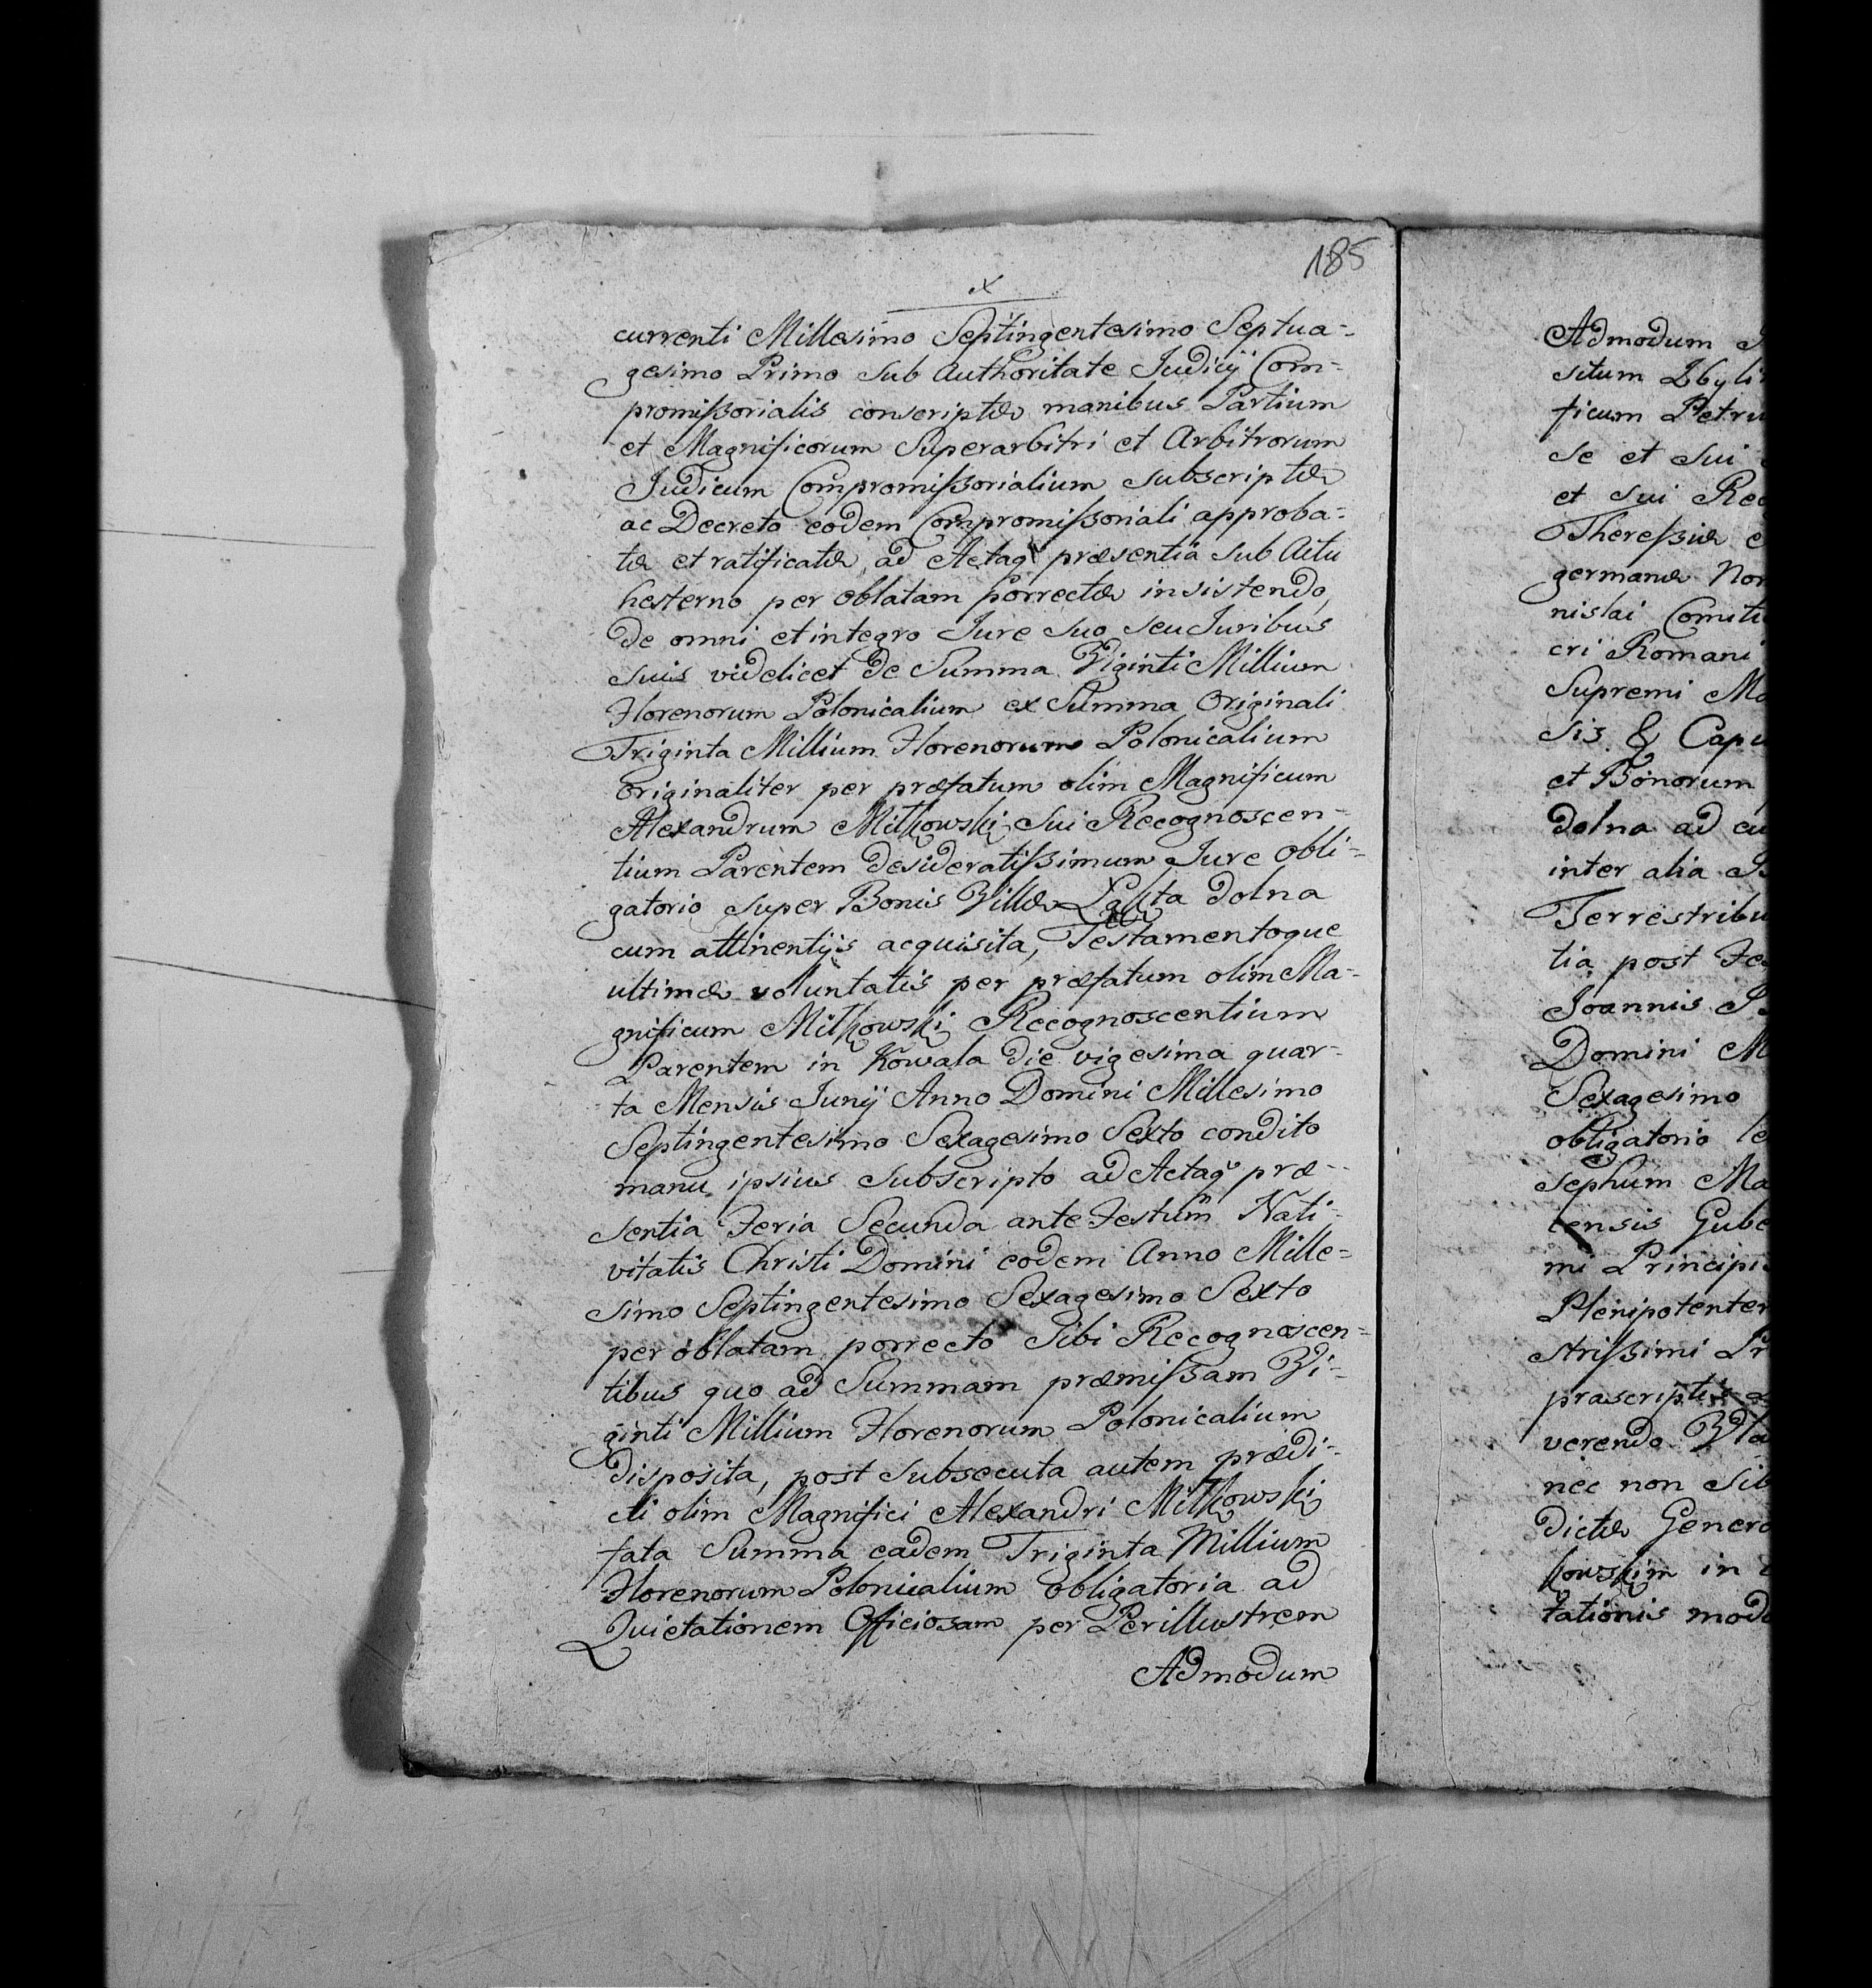 185
x
currenti Millesimo Septingentesimo Septua-
gesimo Primo sub Authoritate Judicij Com-
promißorialis conscriptæ manibus Partium
et Magnificorum Superarbitri et Arbitrorum
Judicum Compromißorialium subscriptæ
ac Decreto eodem Compromißoriali approba-
tæ et ratificatæ, ad Actaq præsentia sub Actu
hesterno per oblatam porrectæ insistendo,
de omni et integro Jure suo seu Juribus
suis videlicet de Summa Viginti Millium
Florenorum Polonicalium ex Summa Originali
Triginta Millium Florenorum Polonicalium
originaliter per præfatum olim Magnificum
Alexandrum Milkowski sui Recognoscen-
tium Parentem desideratißimum Jure obli-
gatorio super Bonis Villæ dolna
cum attinentijs acquisita, Testamentoque
ultimæ voluntatis per præfatum olim Ma-
gnificum Milkowski Recognoscentium
Parentem in Kowala die vigesima quar-
ta Mensis Junij Anno Domini Millesimo
Septingentesimo Sexagesimo Sexto condito
manu ipsius subscripto ad Actaq præ-
sentia Feria Secunda ante Festum Nati-
vitatis Christi Domini eodem Anno Mille-
simo Septingentesimo Sexagesimo Sexto
per oblatam porrecto Sibi Recognoscen-
tibus quo ad Summam præmißam Vi-
ginti Millium Florenorum Polonicalium
disposita, post subsecuta autem prædi-
cti olim Magnifici Alexandri Milkowski
fata Summa eadem Triginta Millium
Florenorum Polonicalium obligatoria ad
Quietationem Officiosam per Perillustrem
Admodum
Admodum
situm
ficum Petru
se et sui
et sui Rec
Thereßiæ
germanæ Nor
nislai Comiti
cri Romani
Supremi Ma
sis & Capi
et Bonorum
dolna ad cu
inter alia
Terrestribu
tia post Fes
Joannis
Domini M
Sexagesimo
obligatorio
sephum Ma
censis Gube
mi Principi
Plenipotenter
strißimi Pr
præscriptis
verendo
nec non Sib
dictæ Genero
kowskim in
tationis modo